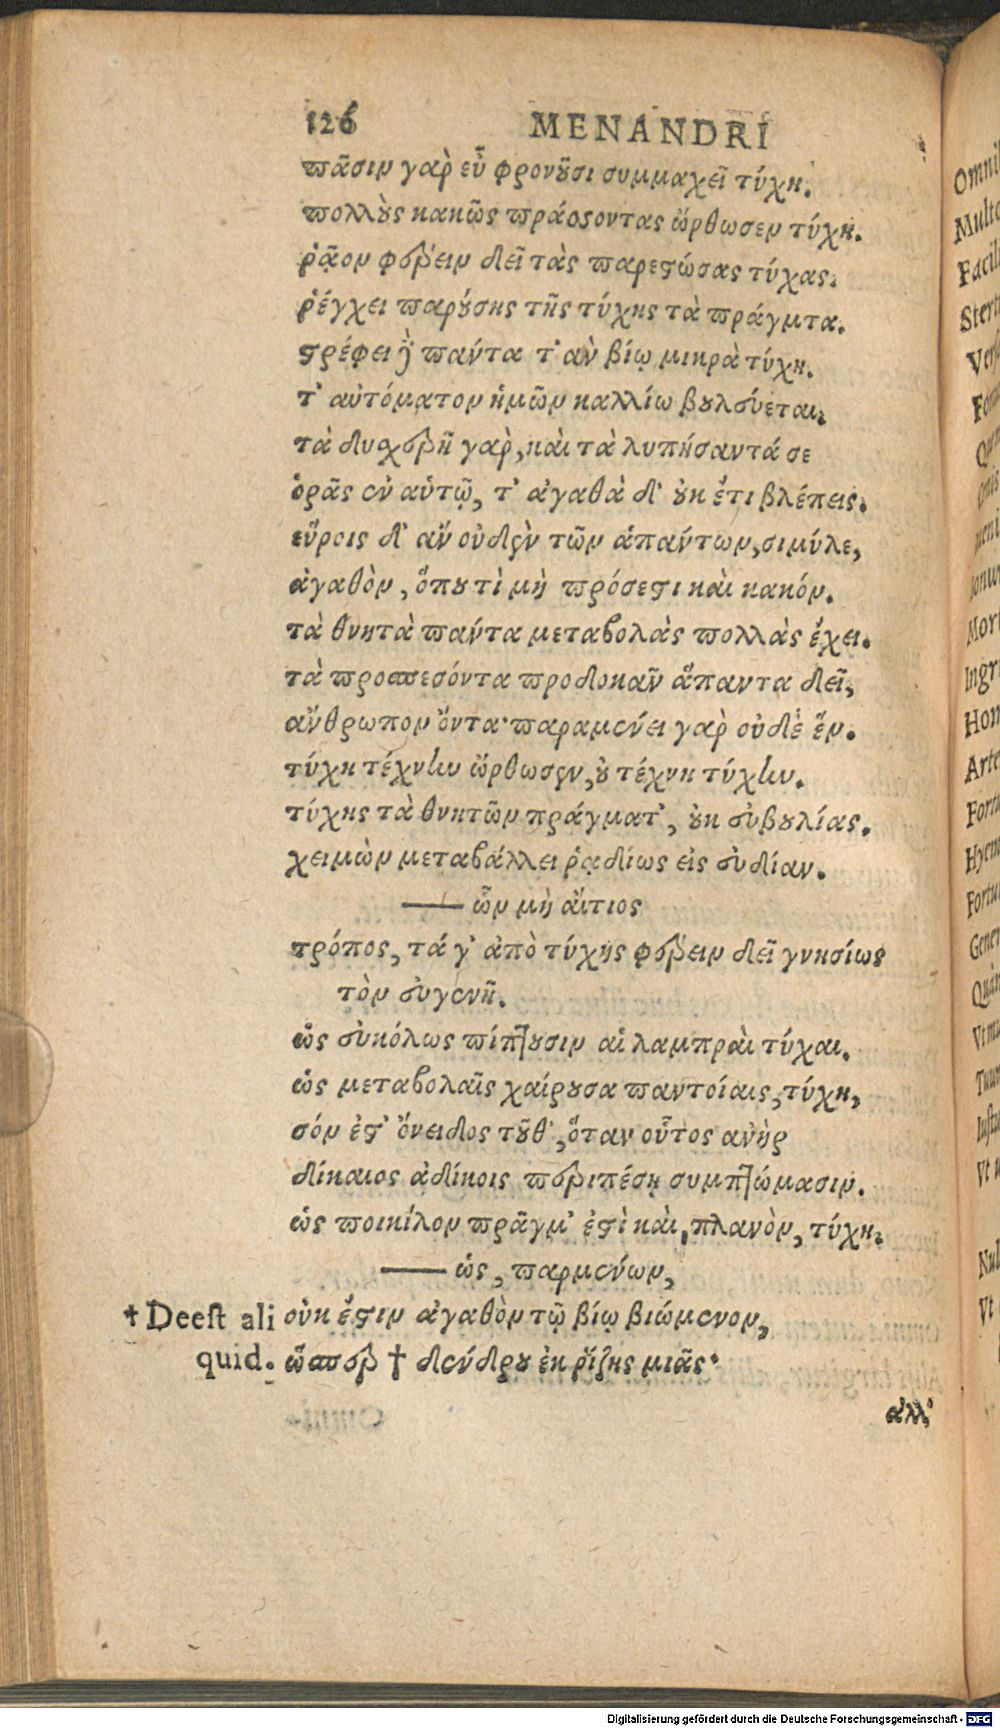 126 MENANDRI
πᾶσιν γὰρ εὖ φρονοῦσι συμμαχεῖ τύχη.
πολλοὺς κακῶς πράσσοντας ὤρθωσεν τύχη.
ῥᾷον φέρειν δεῖ τὰς παρεστώσας τύχας.
ῥέγχει παρούσης τῆς τύχης τὰ πράγματα.
στρέφει δὲ πάντα τ' ἀν βίῳ μικρὰ τύχη.
τ' αὐτόματον ἡμῶν καλλίω βουλεύεται.
τὰ δυσχερῆ γὰρ, καὶ τὰ λυπήσαντά σε
ὁρᾷς ἐν αὑτῷ, τ' ἀγαθὰ δ' οὐκ ἔτι βλέπεις.
εὕροις δ' ἂν οὐδὲν τῶν ἁπάντων, σιμύλε,
ἀγαθὸν, ὅπου τὶ μὴ πρόσεστι καὶ κακόν.
τὰ θνητὰ πάντα μεταβολὰς πολλὰς ἔχει.
τὰ προσπεσόντα προσδοκᾶν ἅπαντα δεῖ,
ἄνθρωπον ὄντα· παραμένει γὰρ οὐδὲ ἕν.
τύχη τέχνην ὤρθωσεν, οὐ τέχνη τύχην.
τύχης τὰ θνητῶν πράγματ', οὐκ εὐβουλίας.
χειμὼν μεταβάλλει ῥᾳδίως εἰς εὐδίαν.
—— ὧν μὴ αἴτιος
τρόπος, τά γ' ἀπὸ τύχης φέρειν δεῖ γνησίως
τὸν εὐγενῆ.
ὡς εὐκόλως πίπτουσιν αἱ λαμπραὶ τύχαι.
ὡς μεταβολαῖς χαίρουσα παντοίαις, τύχη,
σόν ἐστ' ὄνειδος τοῦθ', ὅταν οὗτος ἀνὴρ
δίκαιος ἀδίκοις περιπέσῃ συμπτώμασιν.
ὡς ποικίλον πρᾶγμ' ἐστὶ καὶ, πλανὸν, τύχη.
—— ὡς, παρμένων,
† Deest ali οὐκ ἔστιν ἀγαθὸν τῷ βίῳ βιώμενον,
quid. ὥσπερ † δένδρου ἐκ ῥίζης μιᾶς·
ἀλλ'
Omni
Multo
Facil
Digitalisierung gefördert durch die Deutsche Forschungsgemeinschaft - DFG